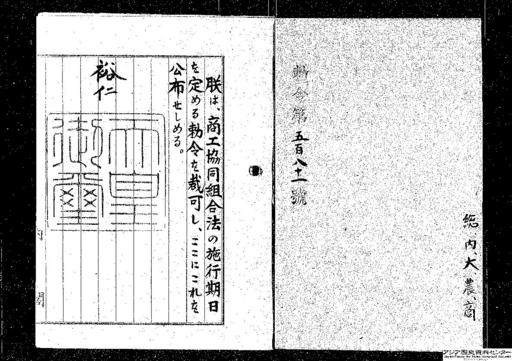 勅令第五百八十一號
総、内、大、農、商
朕は、商工協同組合法の施行期日
を定める勅令を裁可し、ここにこれを
公布せしめる。
裕仁
天皇
御璽
内閣
アジア歴史資料センター